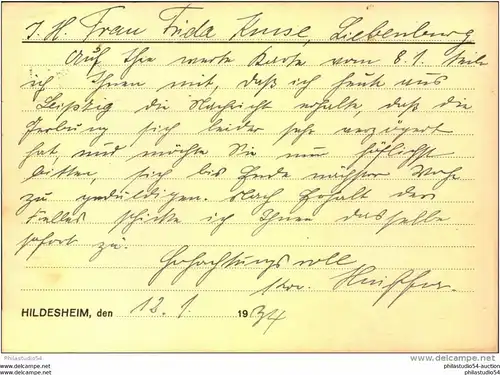 I. H. Frau Frida Kruse, Liebenburg
Auf Ihre werte Karte vom 8.1. teile
ich Ihnen mit, daß ich heute aus
Leipzig die Nachricht erhalte, daß die
Gerbung sich leider sehr verzögert
hat, und möchte Sie nur höflichst
bitten, sich bis Ende nächster Woche
zu geduldigen. Nach Erhalt des
Felles schicke ich Ihnen dasselbe
sofort zu.
Hochachtungsvoll
HILDESHEIM, den 12. 1. 1934
Philastudo54
philastudo54.com
philastudo54-auction
philastudo54.com